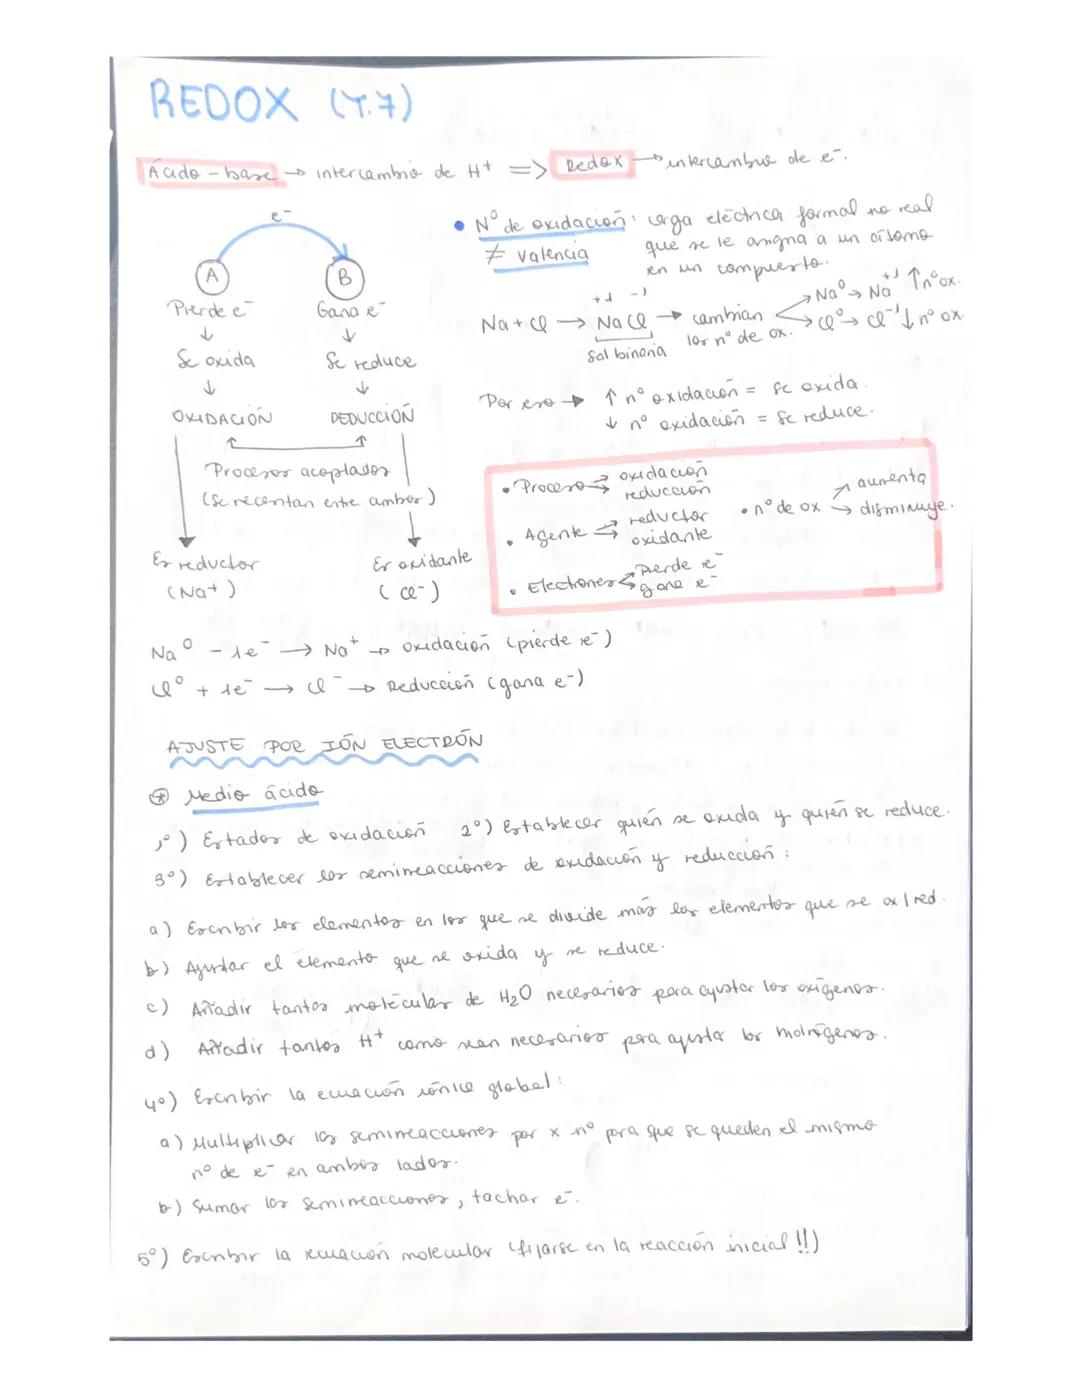 REDOX (T.7)
Ácido-base → intercambio de H⁺ => Redox → intercambio de e⁻.
e⁻
A
B
Pierde e⁻
Gana e⁻
↓
↓
Se oxida
Se reduce
↓
↓
OXIDACIÓN
REDUCCIÓN
Procesos acoplados
(Se necesitan entre ambos)
Es reductor
Es oxidante
(Na⁺)
(Cl⁻)
• Nº de oxidación: carga eléctrica formal no real
≠ valencia
que se le asigna a un átomo
en un compuesto.
+1 -1
Na + Cl → NaCl → cambian
los nº de ox.
Sal binaria
→ Na⁰ → Na⁺¹ ↑ nº ox.
→ Cl⁰ → Cl⁻¹ ↓ nº ox.
Por eso → ↑ nº oxidación = se oxida.
↓ nº oxidación = se reduce.
• Proceso → oxidación
→ reducción
• Agente → reductor
→ oxidante
• Electrones → pierde e⁻
gana e⁻
• nº de ox → aumenta
→ disminuye.
Na⁰ - 1e⁻ → Na⁺ → oxidación (pierde e⁻)
Cl⁰ + 1e⁻ → Cl⁻ → Reducción (gana e⁻)
AJUSTE POR IÓN ELECTRÓN
⊛ Medio ácido
1º) Estados de oxidación 2º) Establecer quién se oxida y quién se reduce.
3º) Establecer las semirreacciones de oxidación y reducción:
a) Escribir los elementos en los que se divide más los elementos que se ox/red.
b) Ajustar el elemento que se oxida y se reduce.
c) Añadir tantas moléculas de H₂O necesarias para ajustar los oxígenos.
d) Añadir tantos H⁺ como sean necesarios para ajustar los hidrógenos.
4º) Escribir la ecuación iónica global:
a) Multiplicar las semirreacciones por x nº para que se queden el mismo
nº de e⁻ en ambos lados.
b) Sumar las semirreacciones, tachar e⁻.
5º) Escribir la ecuación molecular (fijarse en la reacción inicial!!)